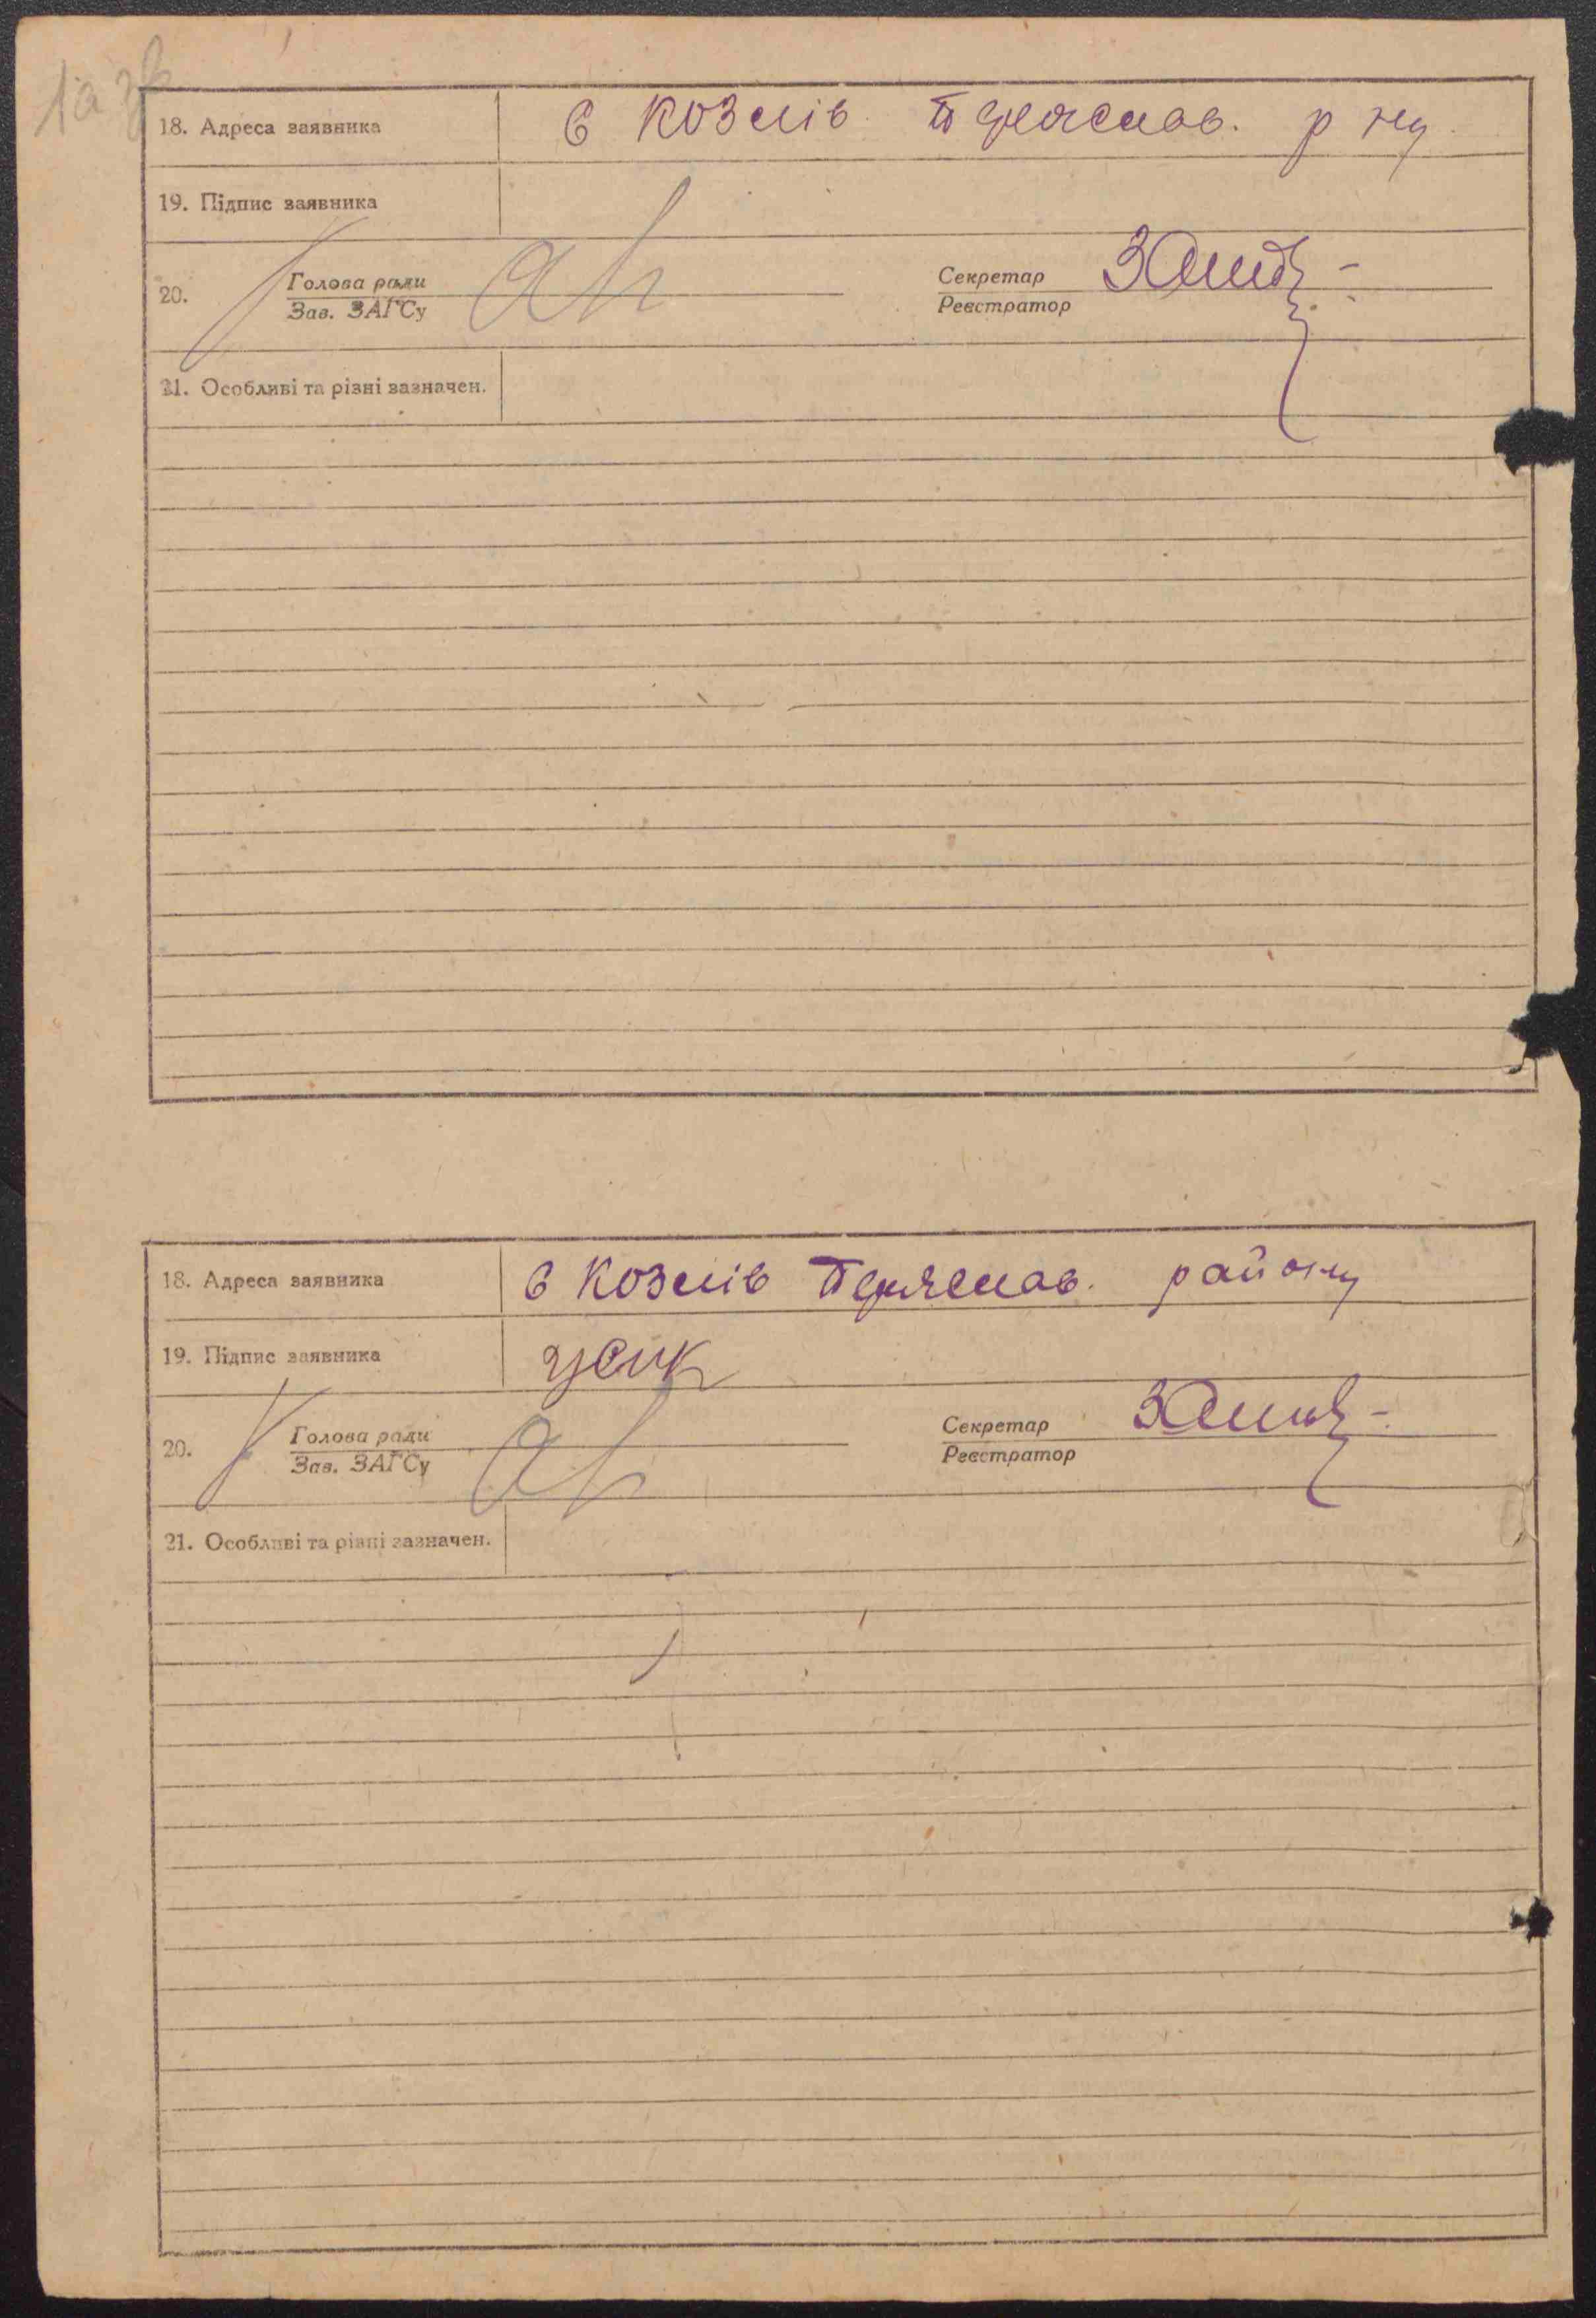 1а зв
18. Адреса заявника с Козлів Переяслав. р ну
19. Підпис заявника
20. Голова ради
Зав. ЗАГСу
Секретар
Реєстратор
21. Особливі та різні зазначен.
18. Адреса заявника с Козлів Переяслав. району
19. Підпис заявника Усик
20. Голова ради
Зав. ЗАГСу
Секретар
Реєстратор
21. Особливі та різні зазначен.